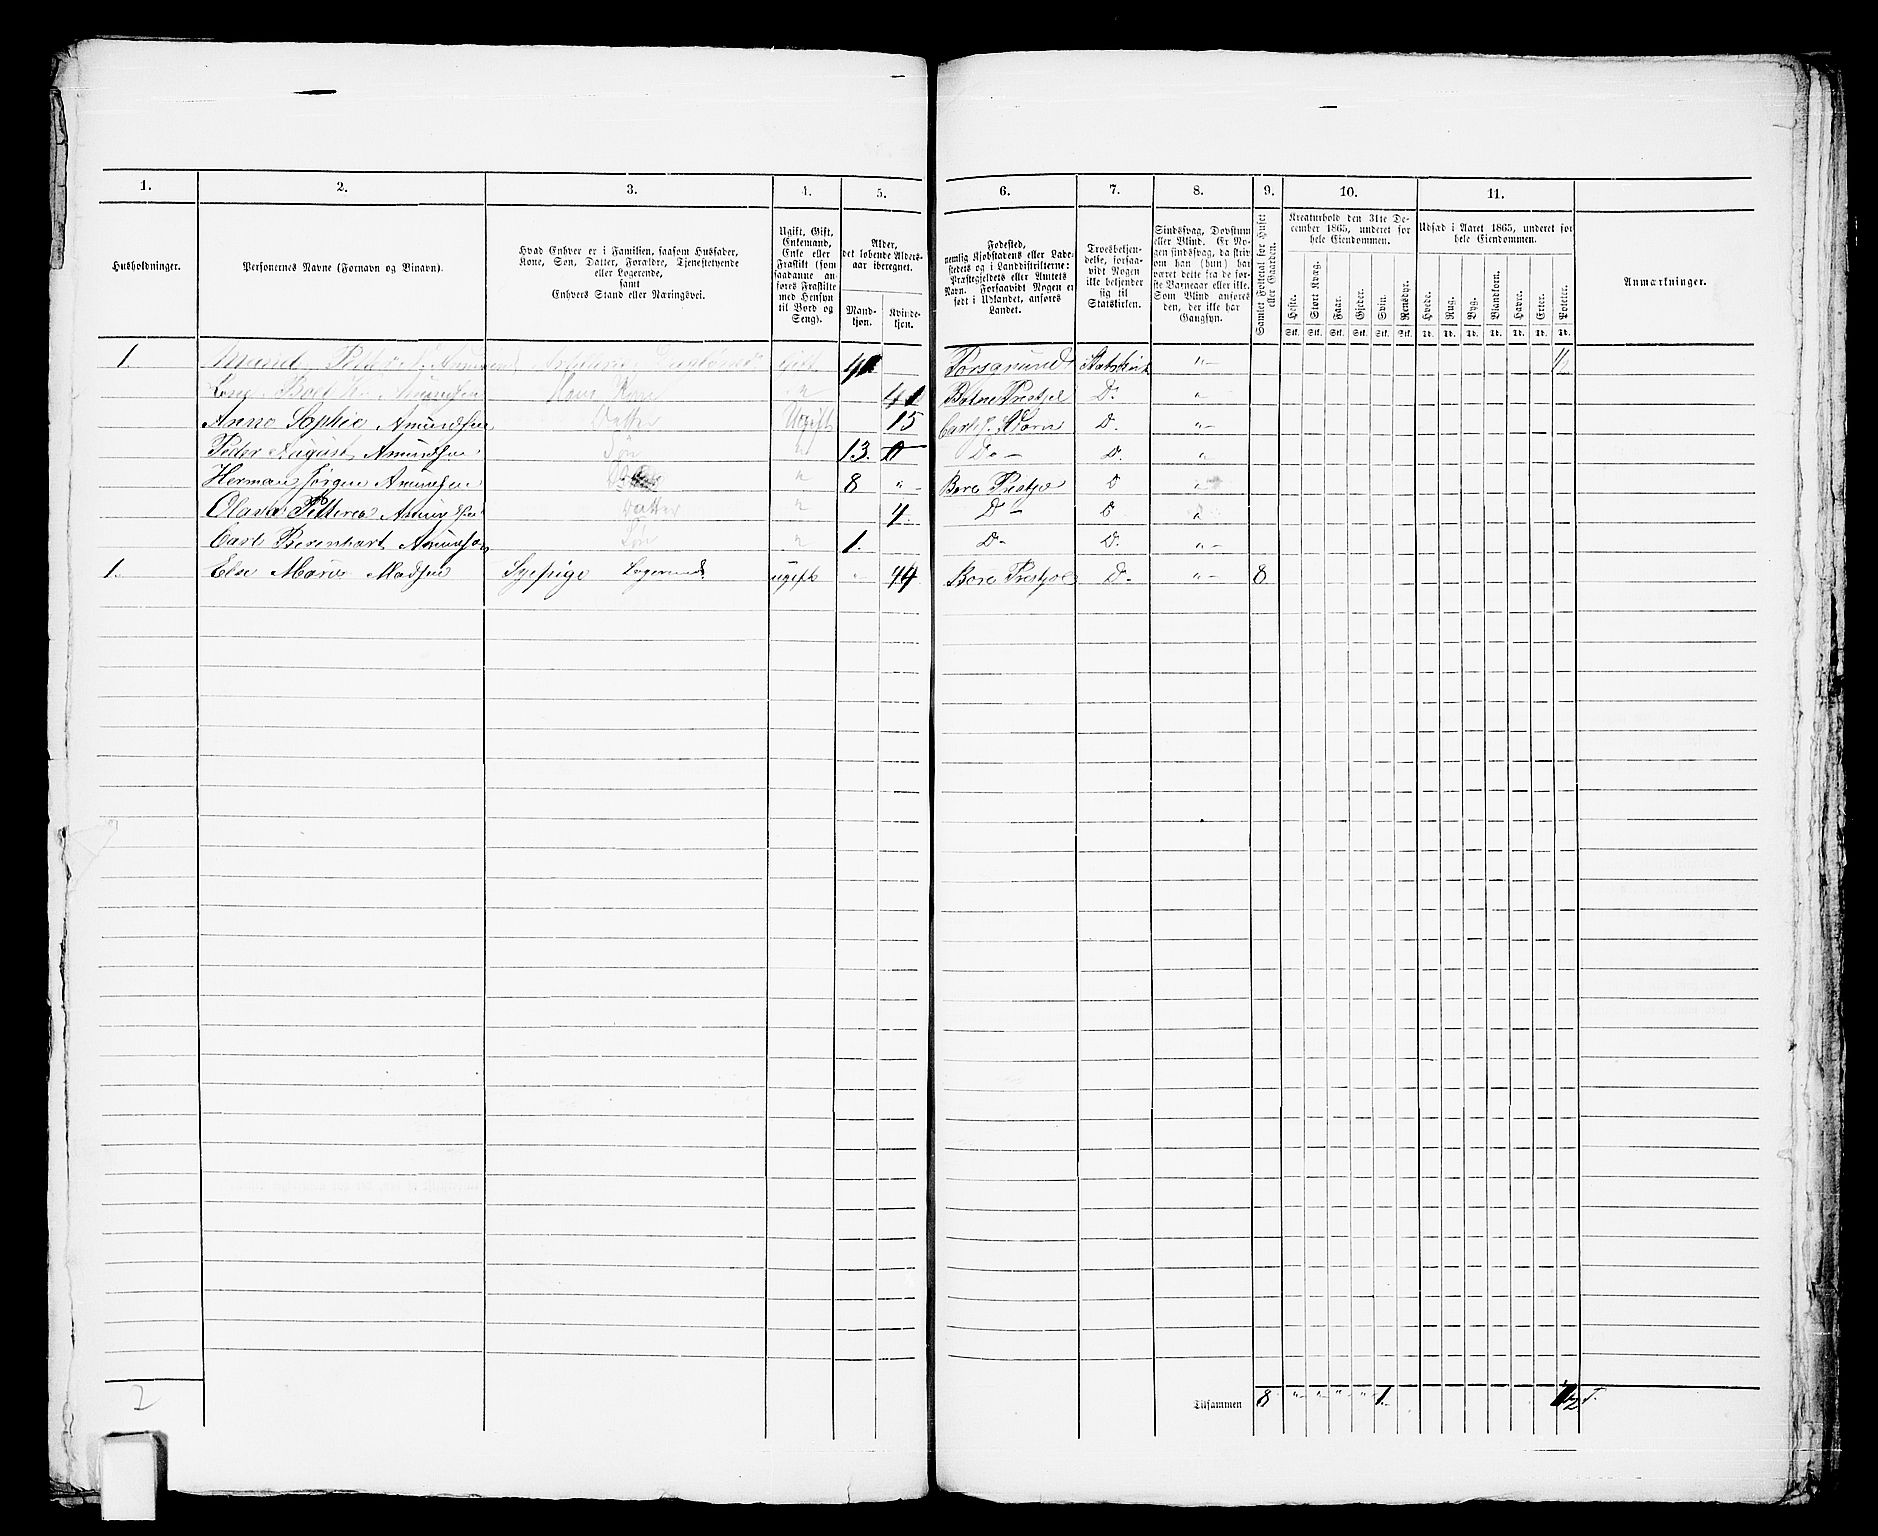 1.
2.
3.
4.
5.
6.
7.
8.
9.
10.
11.
Husholdninger.
Personernes Navne (Fornavn og Binavn).
Hvad Enhver er i Familien, saasom Husfader,
Kone, Søn, Datter, Forældre, Tjenestetyende
eller Logerende,
samt
Enhvers Stand eller Næringsvei.
Ugift, Gift,
Enkemand,
Enke eller
Fraskilt (som
saadanne an-
føres Fraskilte
med Hensyn
til Bord og
Seng).
Alder,
det løbende Alders-
aar iberegnet.
Mand-
kjøn.
Kvinde-
kjøn.
Fødested,
nemlig Kjøbstadens eller Lade-
stedets og i Landdistrikterne:
Præstegjeldets eller Amtets
Navn. Forsaavidt Nogen er
født i Udlandet, anføres
Landet.
Troesbekjen-
delse, forsaa-
vidt Nogen
ikke bekjender
sig til
Statskirken.
Sindssvag, Døvstum
eller Blind. Er No-
gen sindssvag, da skriv
om han (hun) har
været dette fra de før-
ste Barneaar eller ikke.
Som Blind anføres
den, der ikke har
Gangsyn.
Samlet Folketal for Huset
eller Gaarden.
Kreaturhold den 31te De-
cember 1865, underet for
hele Eiendommen.
Heste. Stort Kvæg. Faar. Gjeder. Svin. Rensdyr.
Stk. Stk. Stk. Stk. Stk. Stk.
Udsæd i Aaret 1865, underet for
hele Eiendommen.
Hvede. Rug. Byg. Blandkorn. Havre. Erter. Poteter.
Td. Td. Td. Td. Td. Td. Td.
Anmærkninger.
1. Gift 41 Porsgrund "-
Kone " 41 D. "
Anne Sophie Amundsen Datter Ugift 15 D. "-
Peder August Amundsen Søn " 13. 0 Do - D. "
Herman Jørgen Amundsen " 8 " D "
Olava Petterea Amundsen Datter " 4. Do D "
Carl Berenhart Amundsen Søn " 1. D- D. "-
1. Else Marie Madsen Syepige Logerende ugift " 44 D- "- 8
2
Tilsammen 8 "- "- "- "- 1. ½ T.